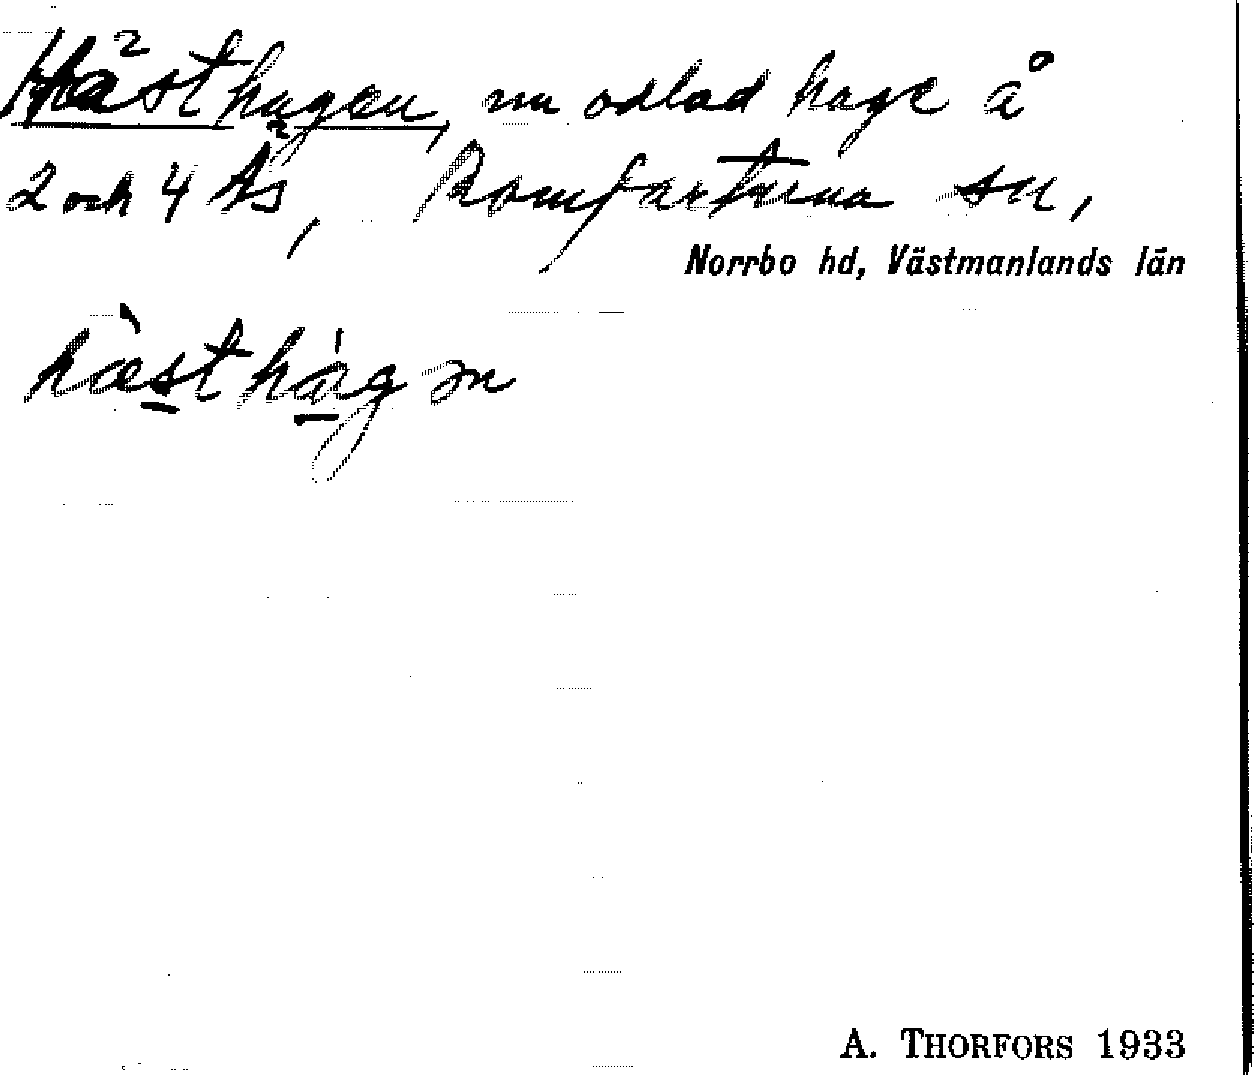 Hästhagen, nu odlad hage å
2 och 4 Ås, Romfartuna sn,
Norrbo hd, Västmanlands län
hæsthagən
A. THORFORS 1933